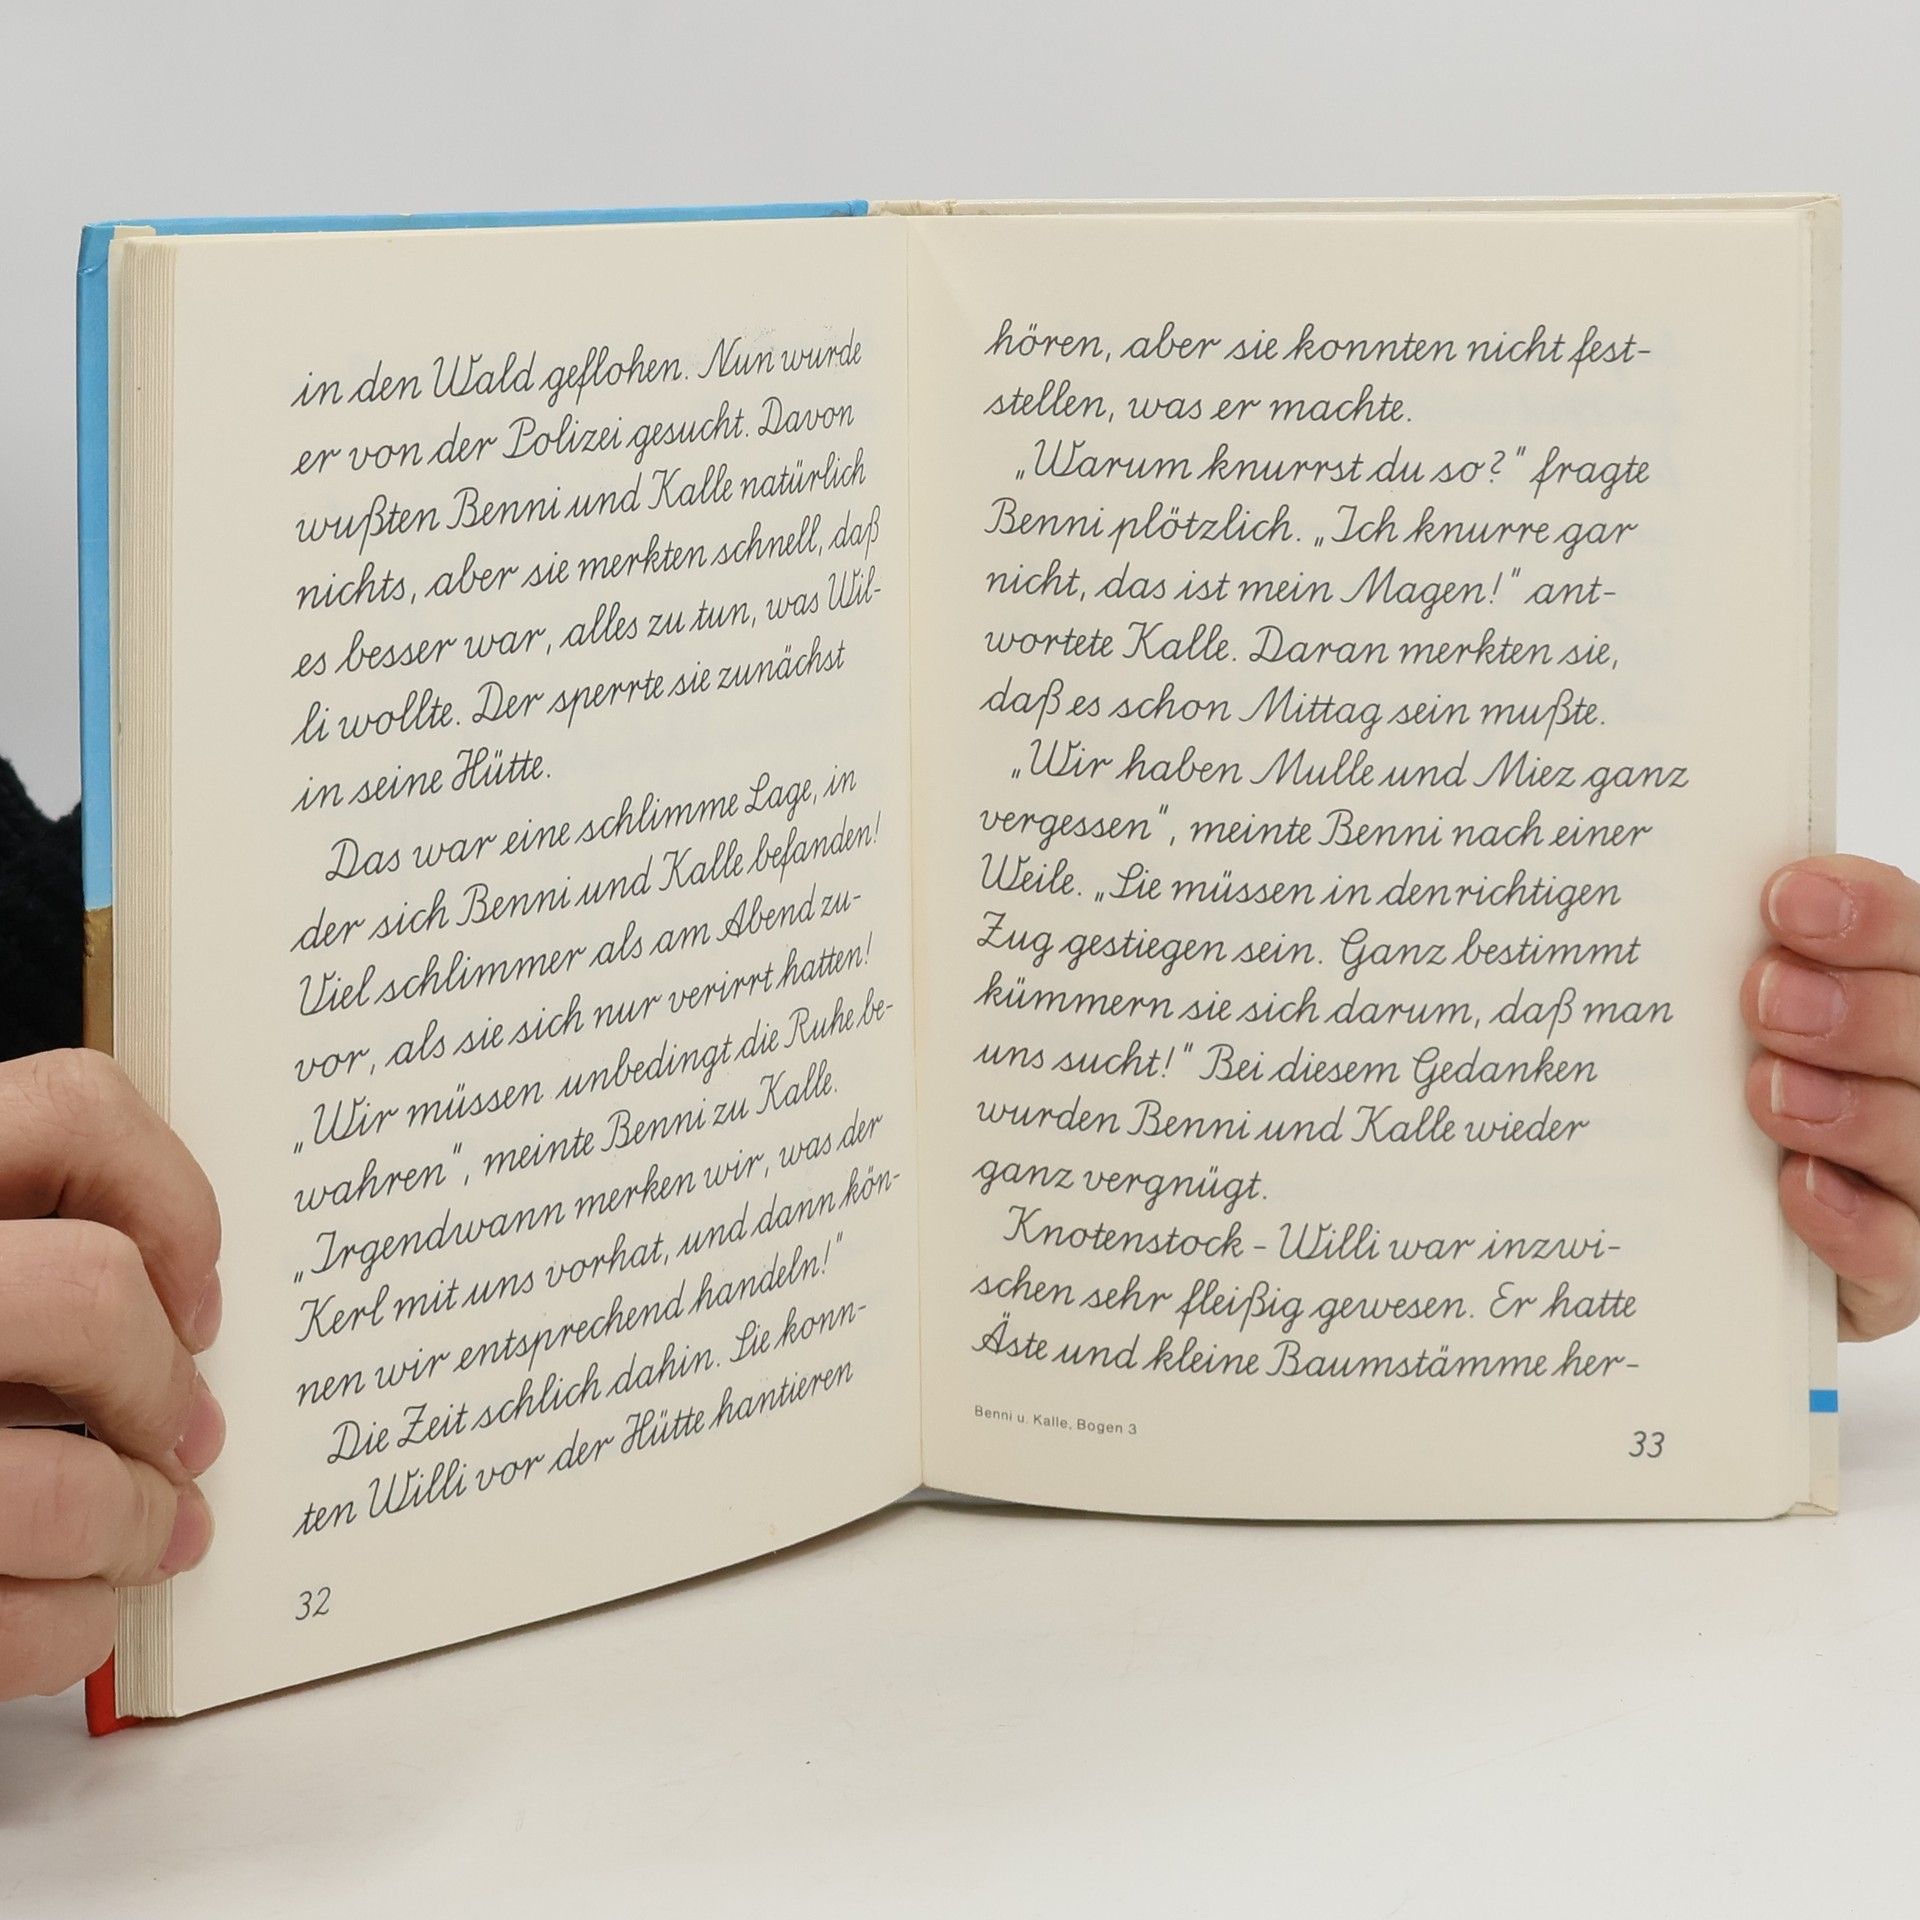 in den Wald geflohen. Nun wurde
er von der Polizei gesucht. Davon
wußten Benni und Kalle natürlich
nichts, aber sie merkten schnell, daß
es besser war, alles zu tun, was Wil-
li wollte. Der sperrte sie zunächst
in seine Hütte.
Das war eine schlimme Lage, in
der sich Benni und Kalle befanden!
Viel schlimmer als am Abend zu-
vor, als sie sich nur verirrt hatten!
„Wir müssen unbedingt die Ruhe be-
wahren“, meinte Benni zu Kalle.
„Irgendwann merken wir, was der
Kerl mit uns vorhat, und dann kön-
nen wir entsprechend handeln!“
Die Zeit schlich dahin. Sie konn-
ten Willi vor der Hütte hantieren
32
hören, aber sie konnten nicht fest-
stellen, was er machte.
„Warum knurrst du so?“ fragte
Benni plötzlich. „Ich knurre gar
nicht, das ist mein Magen!“ ant-
wortete Kalle. Daran merkten sie,
daß es schon Mittag sein mußte.
„Wir haben Mulle und Miez ganz
vergessen“, meinte Benni nach einer
Weile. „Sie müssen in den richtigen
Zug gestiegen sein. Ganz bestimmt
kümmern sie sich darum, daß man
uns sucht!“ Bei diesem Gedanken
wurden Benni und Kalle wieder
ganz vergnügt.
Knotenstock-Willi war inzwi-
schen sehr fleißig gewesen. Er hatte
Äste und kleine Baumstämme her-
Benni u. Kalle, Bogen 3
33